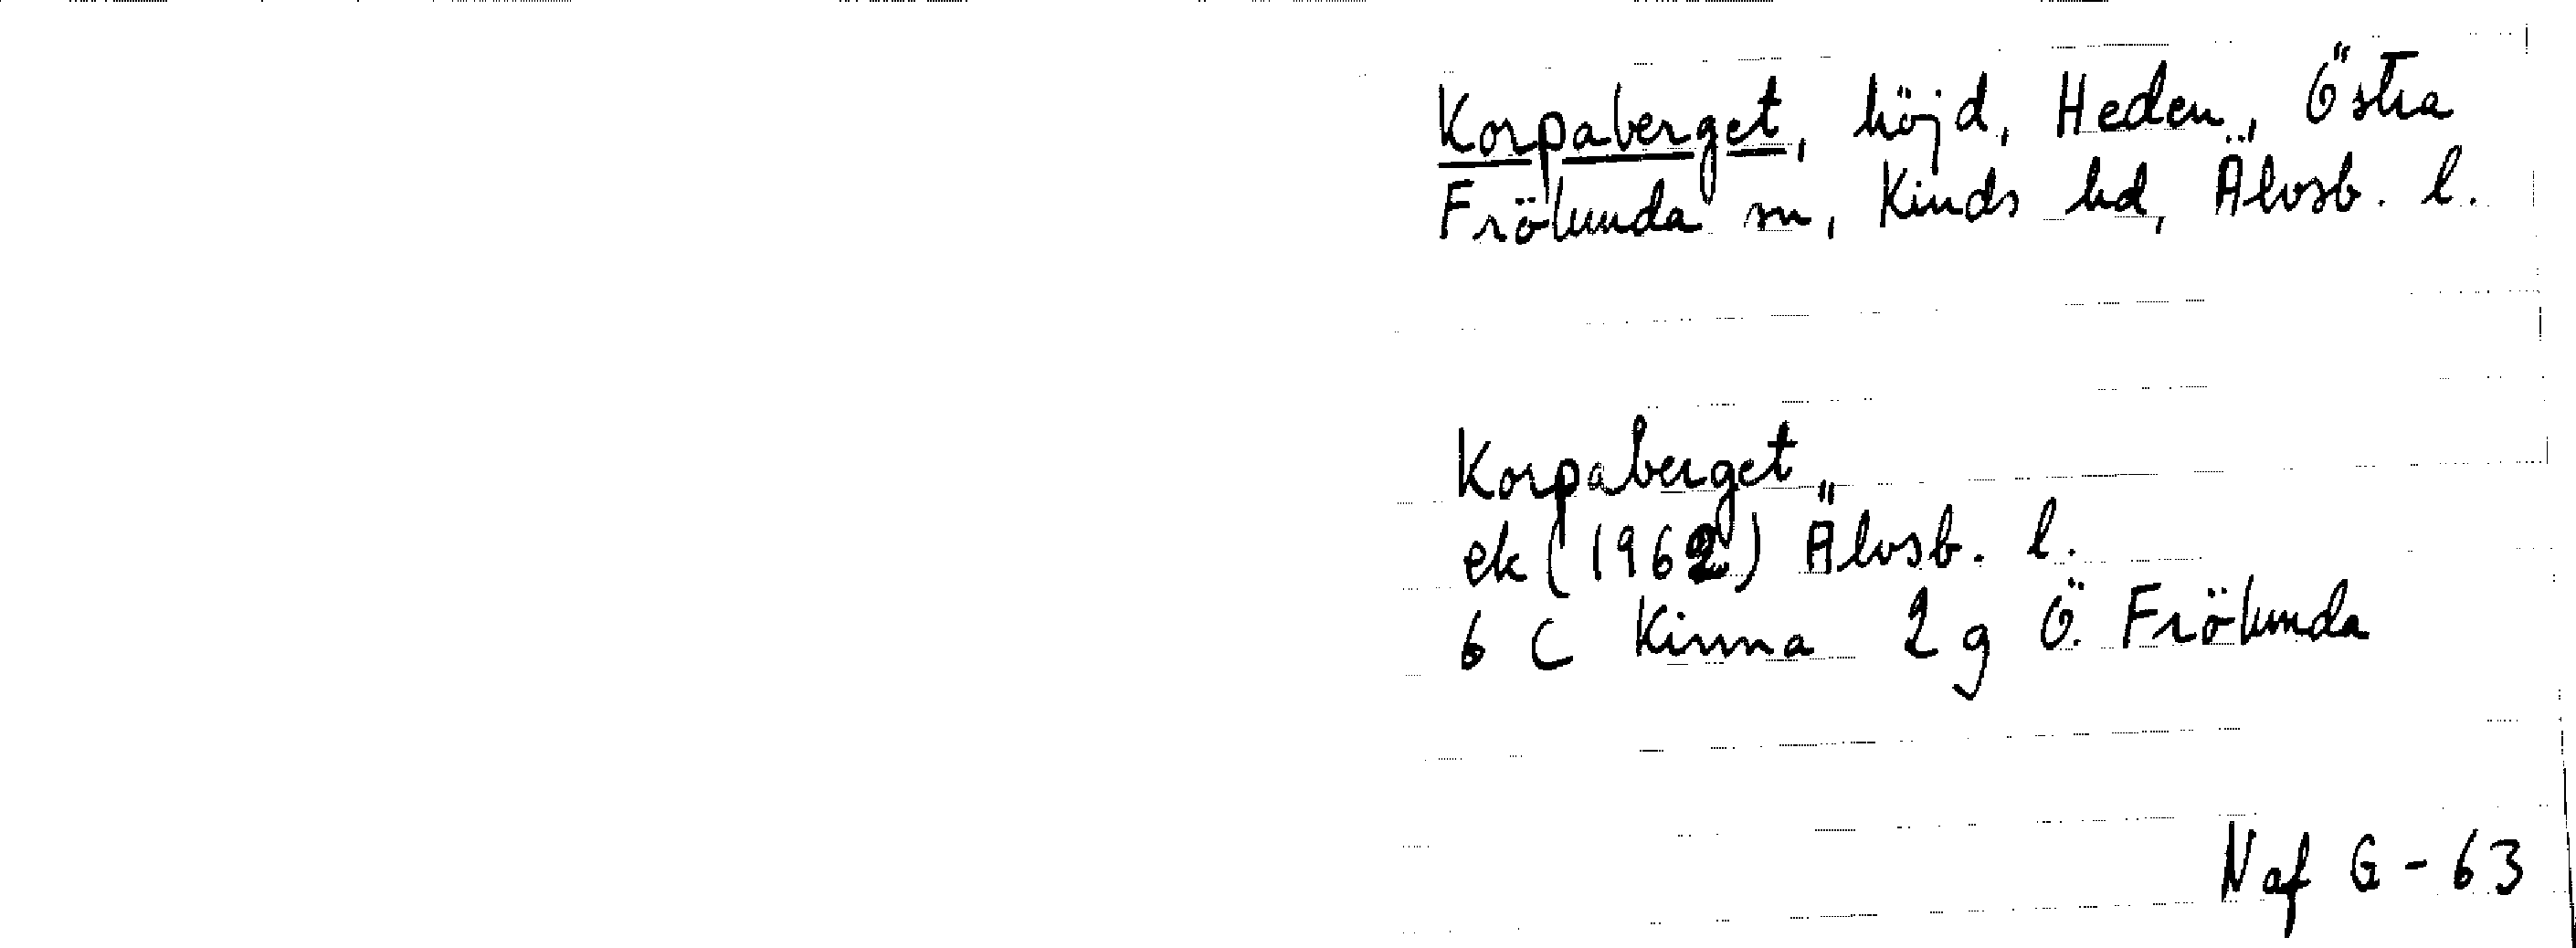 Korpaberget, höjd, Heden, Östra
Frölunda sn, Kinds hd, Älvsb. l.
Korpaberget
ek (1962) Älvsb. l.
6 C Kinna 2 g Ö. Frölunda
Naf G - 63